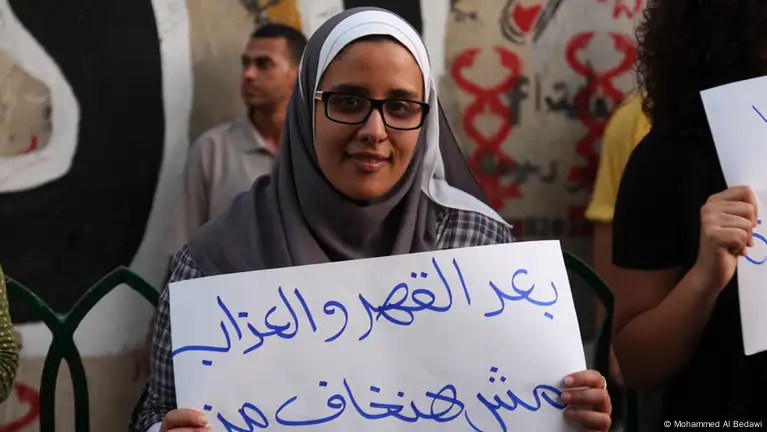 بعد القهر و العزاب
مش هنخاف من
© Mohammed Al Bedawi